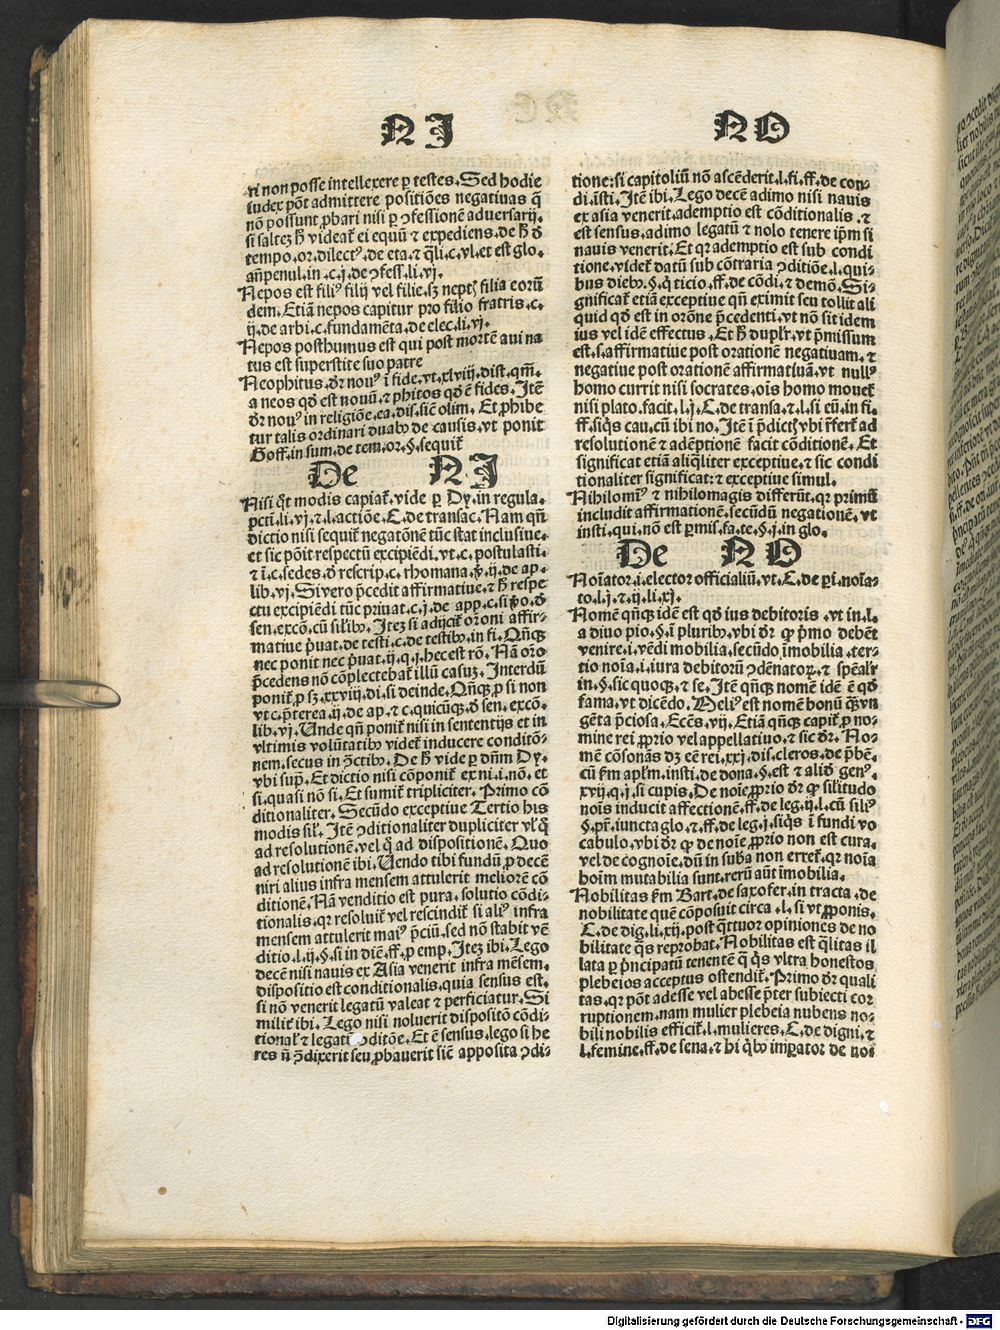 NI
ri non posse intellexere ꝑ testes. Sed hodie
iudex pōt admittere positiōes negatiuas q̄
nō possunt ꝓbari nisi ꝑ ꝯfessionē aduersarij.
si saltez h̄ videat᷑ ei equū ⁊ expediens. de h̄ d̄
tempo. or. dilectꝰ. de eta. ⁊ q̄li. c. vl. et est glo.
an̄penul. in .c. j. de ꝯfess. li. vj.
Nepos est filiꝰ filij vel filie. sꝫ nept᷑ filia eorū
dem. Etiā nepos capitur pro filio fratris. c.
ij. de arbi. c. fundamēta. de elec. li. vj.
Nepos posthumus est qui post mortē aui na
tus est superstite suo patre
Neophitus. dr̄ nouꝰ ī fide. vt. xlviij. dist. qm̄.
a neos qd̄ est nouū. ⁊ phitos qd̄ ē fides. Itē
dr̄ nouꝰ in religiōe. ea. dis. sic̄ olim. Et ꝓhibe
tur talis ordinari duabꝰ de causis. vt ponit
Goff. in sum. de tem. or. §. sequit᷑
De NI
Nisi q̄t modis capiat᷑. vide ꝑ Dy. in regula.
pctī. li. vj. ⁊ .l. actiōe. C. de transac. Nam qn̄
dictio nisi sequit᷑ negatōnē tūc stat inclusiue.
et sic pōit respectū excipiēdi. vt. c. postulasti.
⁊ ī. c. sedes. d̄ rescrip. c. rhomana. ꝓ. ij. de ap.
lib. vj. Si vero p̄cedit affirmatiue. ⁊ h̄ respe
ctu excipiēdi tūc priuat. c. j. de app. c. si ꝟo. d̄
sen. excō. cū sil'ibꝰ. Itez si adijcit᷑ oroni affir-
matiue p̄uat. de testi. c. de testibꝰ. in fi. Qn̄qꝫ
nec ponit nec p̄uat. ij. q. j. hec est rō. Nā oro
p̄cedens nō cōplectebat᷑ illū casuꝫ. Interdū
ponit᷑ ꝓ sꝫ. xxviij. di. si deinde. Qn̄qꝫ ꝓ si non
vt c. p̄terea. ij. de ap. ⁊ c. quicūqꝫ. d̄ sen. excō.
lib. vj. Unde qn̄ ponit᷑ nisi in sententijs et in
vltimis volūtatibꝰ videt᷑ inducere conditō-
nem. secus in ꝯctibꝰ. De h̄ vide ꝑ dn̄m Dy.
vbi supꝭ. Et dictio nisi cōponit᷑ ex ni. i. nō. et
si. quasi nō si. Et sumit᷑ tripliciter. Primo cō
ditionaliter. Secūdo exceptiue Tertio his
modis sil'. Itē ꝯditionaliter dupliciter vl' q̄
ad resolutionē. vel q̄ ad dispositionē. Quo
ad resolutionē ibi. Uendo tibi fundū ꝓ decē
niri alius infra mensem attulerit meliorē cō
ditionē. Nā venditio est pura. solutio cōdi-
tionalis. qr resoluit᷑ vel rescindit᷑ si aliꝰ infra
mensem attulerit maiꝰ p̄ciū. sed nō stabit vē
ditio. l. ij. §. si in diē. ff. ꝓ emp. Itez ibi. Lego
decē nisi nauis ex Asia venerit infra mēsem.
dispositio est conditionalis. quia sensus est.
si nō venerit legatū valeat ⁊ perficiatur. Si
milit᷑ ibi. Lego nisi noluerit dispositō cōdi-
tional' ⁊ legati ꝯditōe. Et ē sensus. lego si he
res ū ꝯdixerit seu ꝓbauerit sic̄ apposita ꝯdi-
NO
tione: si capitoliū nō ascēderit. l. fi. ff. de con-
di. isti. Itē ibi. Lego decē adimo nisi nauis
ex asia venerit. ademptio est cōditionalis. ⁊
est sensus. adimo legatū ⁊ nolo tenere ip̄m si
nauis venerit. Et qr ademptio est sub condi
tione. videt᷑ datū sub cōtraria ꝯditiōe. l. qui-
bus diebꝰ. §. q̄ ticio. ff. de cōdi. ⁊ demō. Si-
gnificat᷑ etiā exceptiue qn̄ eximit seu tollit ali
quid qd̄ est in orōne p̄cedenti. vt nō sit idem
ius vel idē effectus. Et h̄ duplr̄. vt p̄missum
est. s. affirmatiue post orationē negatiuam. ⁊
negatiue post orationē affirmatiuā. vt nullꝰ
homo currit nisi socrates. oīs homo mouet᷑
nisi plato. facit. l. j. C. de transa. ⁊ .l. si cū. in fi.
ff. siq̄s cau. cū ibi no. Itē ī p̄dictꝭ vbi r̄fert᷑ ad
resolutionē ⁊ adēptionē facit cōditionē. Et
significat etiā aliq̄liter exceptiue. ⁊ sic condi
tionaliter significat: ⁊ exceptiue simul.
Nihilomiꝰ ⁊ nihilomagis differūt. qr primū
includit affirmationē. secūdū negationē. vt
insti. qui. nō est ꝑmis. fa. te. §. j. in glo.
De NO
Noīator. i. elector officialiū. vt. C. de ꝑi. noīa-
to. l. j. ⁊ ij. li. xj.
Nomē qn̄qꝫ idē est qd̄ ius debitoris. vt in. l.
a diuo pio. §. ī pluribꝰ. vbi dr̄ ꝙ p̄mo debēt
venire. i. vēdi mobilia. secūdo īmobilia. ter-
tio noīa. i. iura debitorū ꝯdēnatorꝝ. ⁊ spēalr̄
in. §. sic quoqꝫ. ⁊ se. Itē qn̄qꝫ nomē idē ē qd̄
fama. vt dicēdo. Meliꝰ est nomē bonū q̄ꝫ vn
gēta p̄ciosa. Eccs̄. vij. Etiā qn̄qꝫ capit᷑ ꝓ no-
mine rei ꝓprio vel appellatiuo. ⁊ sic dr̄. No-
mē cōsonās dꝫ cē rei. xxj. dis. cleros. de p̄bē.
cū f̄m apl'm. insti. de dona. §. est ⁊ aliđ genꝰ.
xxij. q. j. si cupis. De noīe ꝓprio dr̄ ꝙ sil'itudo
noīs inducit affectionē. ff. de leg. ij. l. cū filiꝰ
§. pr̄. iuncta glo. ⁊ .ff. de leg. j. siq̄s ī fundi vo
cabulo. vbi dr̄ ꝙ de noīe ꝓprio non est cura.
vel de cognoīe. dū in sub̄a non erret᷑. qr noīa
hoīm mutabilia sunt. rerū aūt īmobilia.
Nobilitas f̄m Bart. de saxofer. in tracta. de
nobilitate quē cōposuit circa. l. si vt ꝓponis.
C. de dig. li. xij. post q̄ttuor opiniones de no
bilitate q̄s reprobat. Nobilitas est q̄litas il
lata ꝑ p̄ncipatū tenentē q̄ q̄s vltra honestos
plebeios acceptus ostendit᷑. Primo dr̄ quali
tas. qr pōt adesse vel abesse p̄ter subiecti cor
ruptionem. nam mulier plebeia nubens no-
bili nobilis efficit᷑. l. mulieres. C. de digni. ⁊
l. femine. ff. de sena. ⁊ hi q̄bꝰ imꝑator de noi
Digitalisierung gefördert durch die Deutsche Forschungsgemeinschaft - DFG